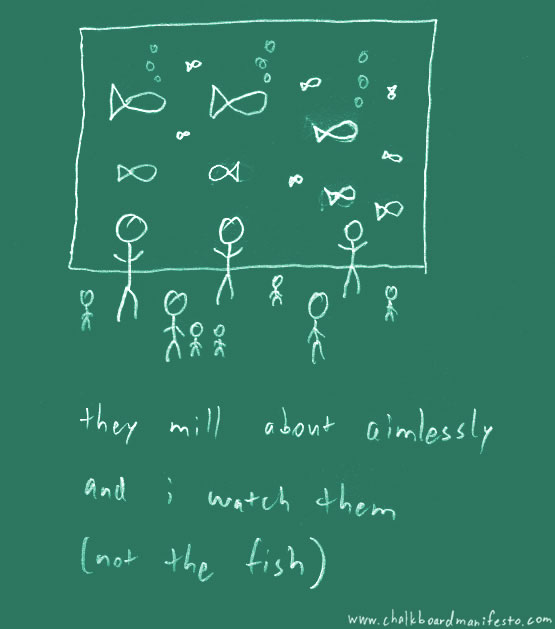 they mill about aimlessly
and i watch them
(not the fish)
www.chalkboardmanifesto.com